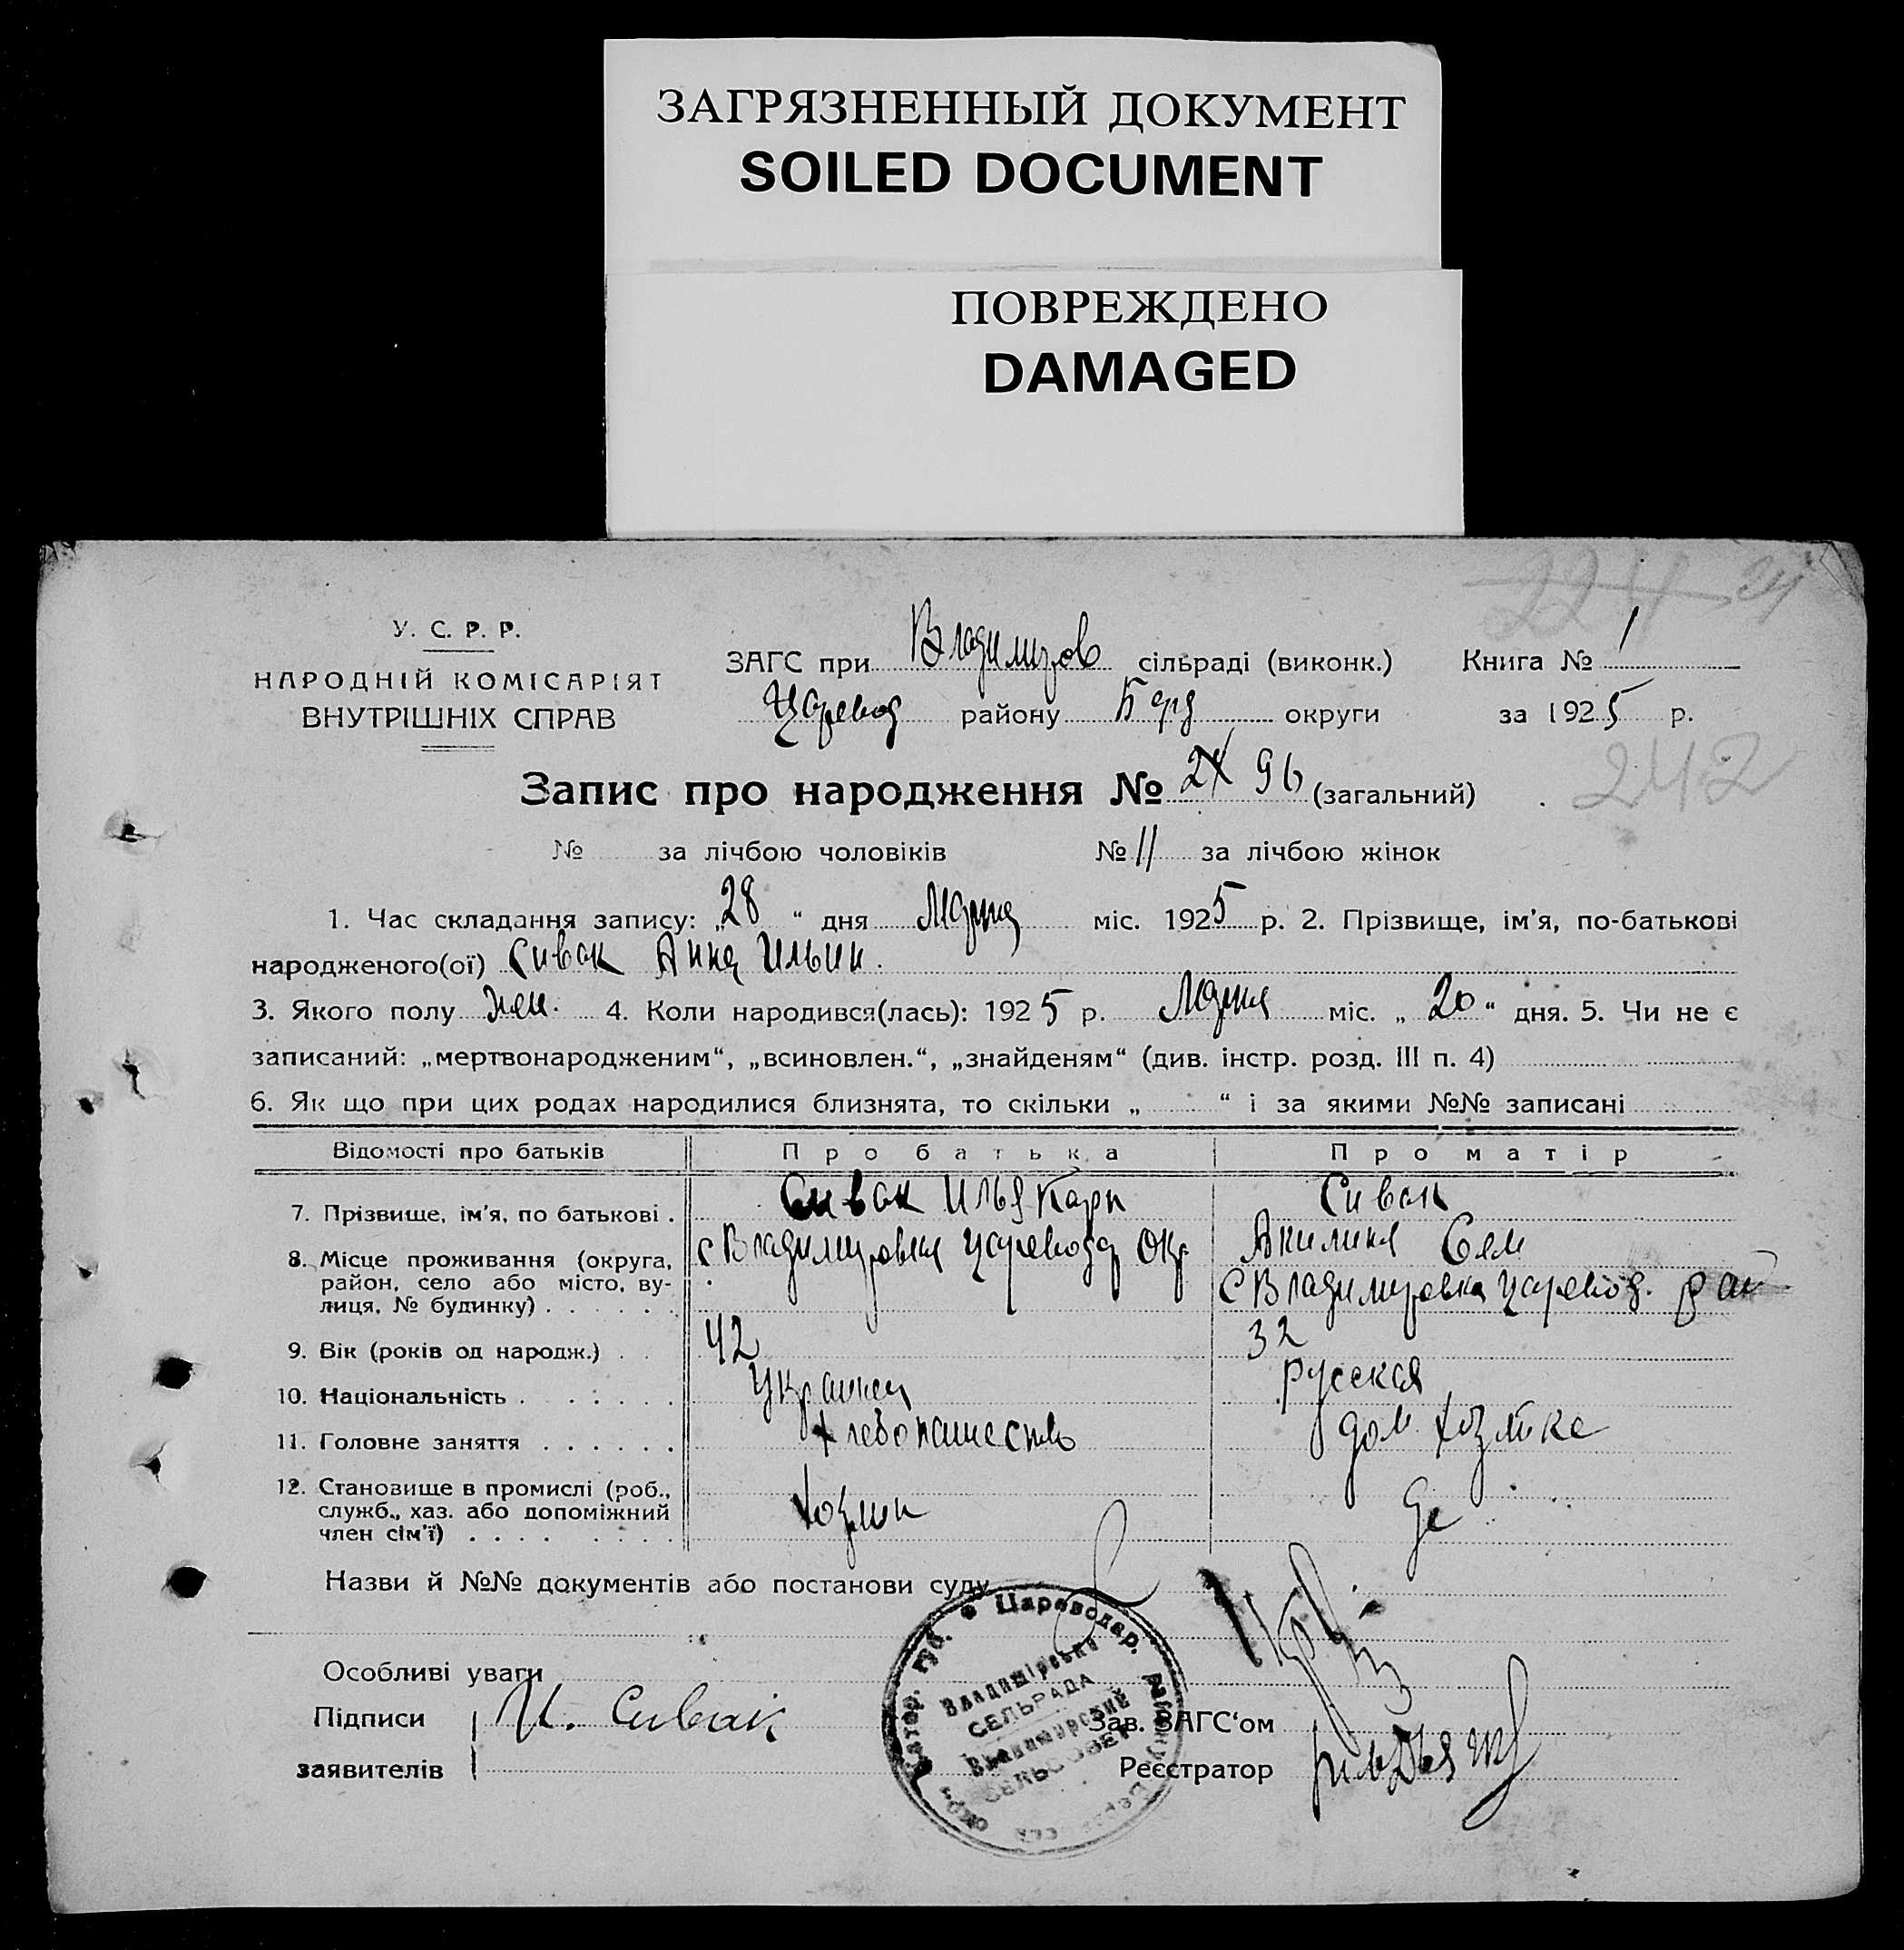 ЗАГРЯЗНЕННЫЙ ДОКУМЕНТ
SOILED DOCUMENT
ПОВРЕЖДЕНО
DAMAGED
У. С. Р. Р.
НАРОДНІЙ КОМІСАРІЯТ
ВНУТРІШНІХ СПРАВ
ЗАГС при Владимиров сільраді (виконк.) Книга № 1
Царевод району Берд округи за 1925 р.
Запис про народження № 96 (загальний)
242
№ за лічбою чоловіків № 11 за лічбою жінок
1. Час складання запису: „28“ дня Марта міс. 1925 р. 2. Прізвище, ім’я, по-батькові
народженого(ої) Сивак Анна Ильин.
3. Якого полу жен. 4. Коли народився(лась): 1925 р. Марта міс. „20“ дня. 5. Чи не є
записаний: „мертвонародженим“, „всиновлен.“, „знайденям“ (див. інстр. розд. III п. 4)
6. Як що при цих родах народилися близнята, то скільки „ “ і за якими №№ записані
Відомості про батьків Про батька Про матір
7. Прізвище, ім’я, по батькові . Сивак Илья Карп Сивак
Акилина Сем
8. Місце проживання (округа, с Владимировка Царевода Окр
район, село або місто, ву- с Владимировка Царевод. рай
лиця, № будинку) . . . . . .
9. Вік (років од народж.) . . 42 32
10. Національність . . . . . . Украинец русская
11. Головне заняття . . . . . . Хлебопашество дом. хозяйка
12. Становище в промислі (роб.,
служб., хаз. або допоміжний Хозяин
член сім’ї) . . . . . . . .
Назви й №№ документів або постанови суду
Особливі уваги
Підписи И. Сивак Зав. ЗАГС‘ом
заявителів Реєстратор
Цареводар. району
СЕЛЬРАДА
Владимирский
СЕЛЬСОВЕТ